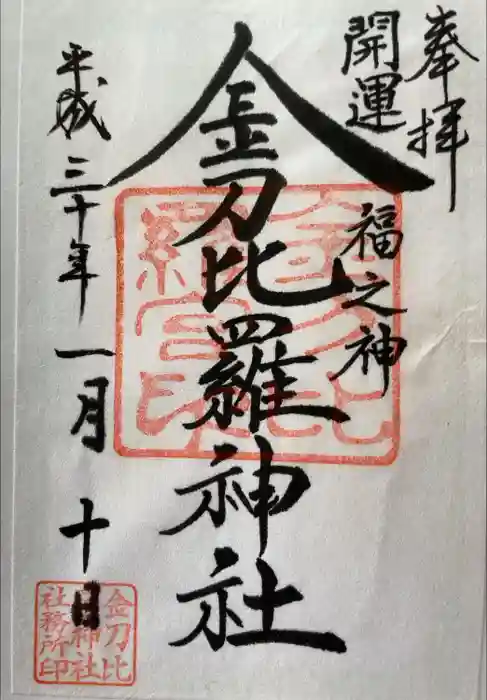 奉拝
開運
福之神
金刀比羅神社
平成三十年一月十日
金刀比
羅神社
社務所印